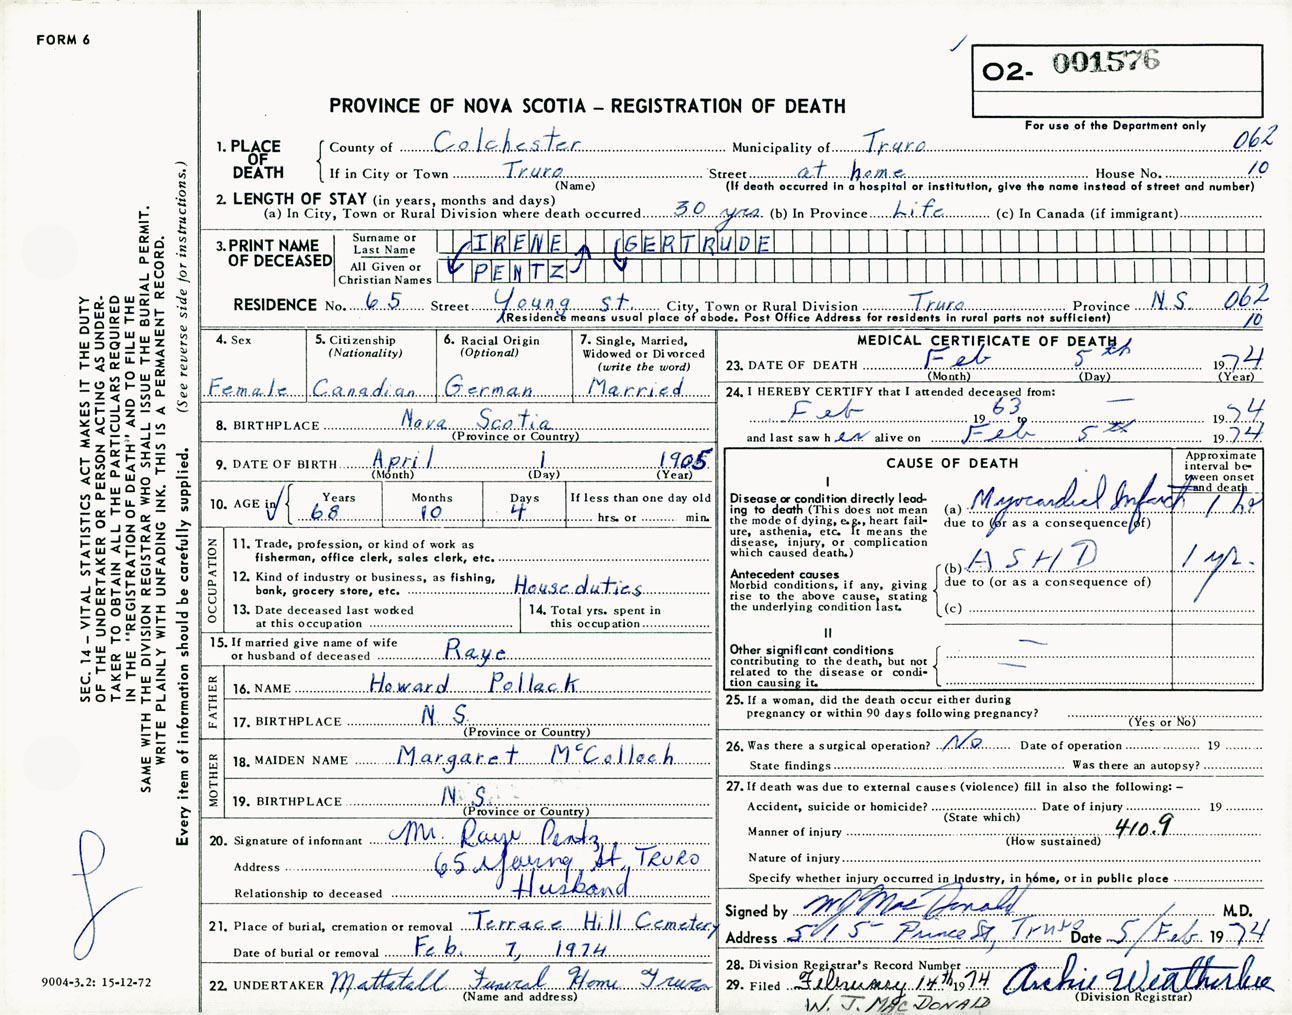 FORM 6
O2- 001576
PROVINCE OF NOVA SCOTIA – REGISTRATION OF DEATH
For use of the Department only
1. PLACE OF DEATH
County of Colchester Municipality of Truro 062
If in City or Town Truro Street at home House No. 10
(Name) (If death occurred in a hospital or institution, give the name instead of street and number)
2. LENGTH OF STAY (in years, months and days)
(a) In City, Town or Rural Division where death occurred 30 yrs (b) In Province Life (c) In Canada (if immigrant)
3. PRINT NAME OF DECEASED
Surname or Last Name IRENE GERTRUDE
All Given or Christian Names PENTZ
RESIDENCE No. 65 Street Young St. City, Town or Rural Division Truro Province N.S. 062
(Residence means usual place of abode. Post Office Address for residents in rural parts not sufficient) 10
4. Sex Female
5. Citizenship (Nationality) Canadian
6. Racial Origin (Optional) German
7. Single, Married, Widowed or Divorced (write the word) Married
8. BIRTHPLACE Nova Scotia
(Province or Country)
9. DATE OF BIRTH April 1 1905
(Month) (Day) (Year)
10. AGE in Years 68 Months 10 Days 4 If less than one day old
hrs. or min.
OCCUPATION
11. Trade, profession, or kind of work as
fisherman, office clerk, sales clerk, etc.
12. Kind of industry or business, as fishing,
bank, grocery store, etc. House duties
13. Date deceased last worked
at this occupation
14. Total yrs. spent in
this occupation
15. If married give name of wife
or husband of deceased Raye
FATHER
16. NAME Howard Pollack
17. BIRTHPLACE N S
(Province or Country)
MOTHER
18. MAIDEN NAME Margaret McColloch
19. BIRTHPLACE N S
(Province or Country)
20. Signature of informant Mr. Raye Pentz
Address 65 Young St, TRURO
Relationship to deceased Husband
21. Place of burial, cremation or removal Terrace Hill Cemetery
Date of burial or removal Feb. 7, 1974
22. UNDERTAKER Mattatall Funeral Home Truro
(Name and address)
MEDICAL CERTIFICATE OF DEATH
23. DATE OF DEATH Feb 5th 1974
(Month) (Day) (Year)
24. I HEREBY CERTIFY that I attended deceased from:
Feb 1963 to – 1974
and last saw h er alive on Feb 5th 1974
CAUSE OF DEATH
Approximate interval between onset and death
I
Disease or condition directly lead-
ing to death (This does not mean
the mode of dying, e.g., heart fail-
ure, asthenia, etc. It means the
disease, injury, or complication
which caused death.)
(a) Myocardial Infarct 1 hr
due to (or as a consequence of)
Antecedent causes
Morbid conditions, if any, giving
rise to the above cause, stating
the underlying condition last.
(b) ASHD 1 yr.
due to (or as a consequence of)
(c)
II
Other significant conditions
contributing to the death, but not
related to the disease or condi-
tion causing it.
25. If a woman, did the death occur either during
pregnancy or within 90 days following pregnancy?
(Yes or No)
26. Was there a surgical operation? No Date of operation 19
State findings Was there an autopsy?
27. If death was due to external causes (violence) fill in also the following: –
Accident, suicide or homicide? Date of injury 19
(State which)
Manner of injury 410.9
(How sustained)
Nature of injury
Specify whether injury occurred in industry, in home, or in public place
Signed by W J MacDonald M.D.
Address 515 Prince St, Truro Date 5/Feb 1974
28. Division Registrar's Record Number
29. Filed February 14th 1974 Archie Weatherbee
(Division Registrar)
W. J. MACDONALD
SEC. 14 – VITAL STATISTICS ACT MAKES IT THE DUTY
OF THE UNDERTAKER OR PERSON ACTING AS UNDER-
TAKER TO OBTAIN ALL THE PARTICULARS REQUIRED
IN THE "REGISTRATION OF DEATH" AND TO FILE THE
SAME WITH THE DIVISION REGISTRAR WHO SHALL ISSUE THE BURIAL PERMIT.
WRITE PLAINLY WITH UNFADING INK. THIS IS A PERMANENT RECORD.
Every item of information should be carefully supplied. (See reverse side for instructions.)
9004-3.2: 15-12-72